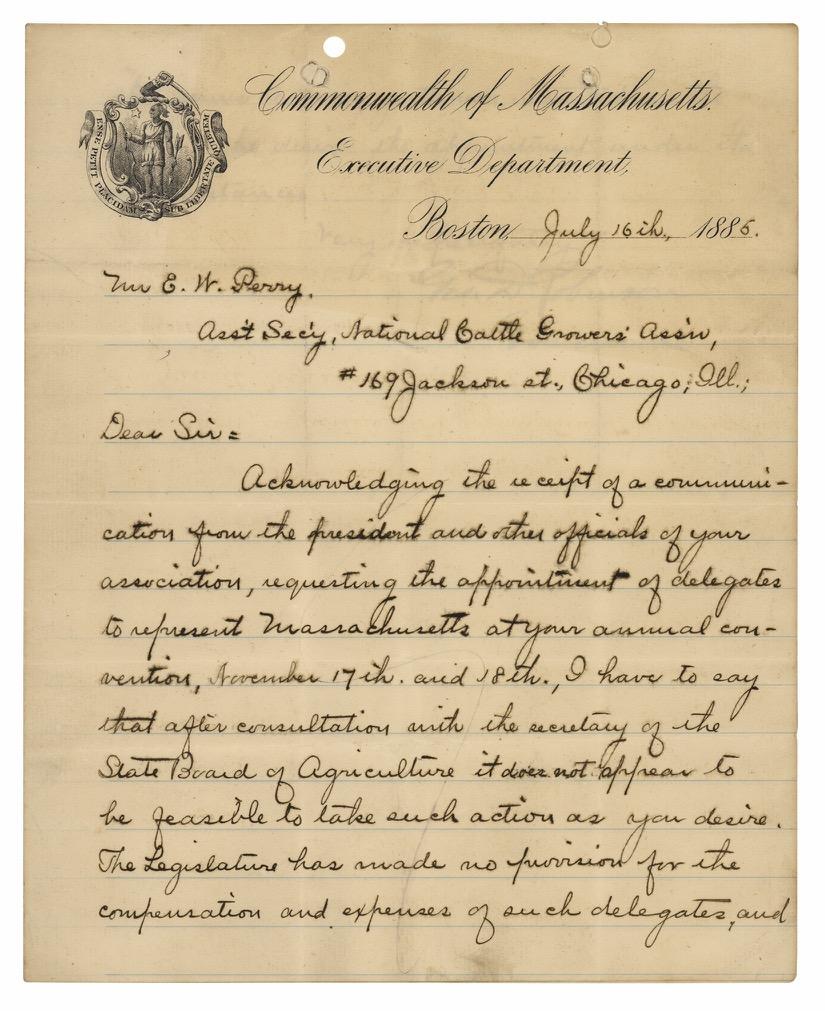 Commonwealth of Massachusetts.
Executive Department,
ENSE PETIT PLACIDAM SUB LIBERTATE QUIETEM
Boston, July 16th, 1885.
Mr E. W. Perry,
Ass't Sec'y, National Cattle Growers' Ass'n,
#169 Jackson st., Chicago, Ill.;
Dear Sir =
Acknowledging the receipt of a communi-
cation from the president and other officials of your
association, requesting the appointment of delegates
to represent Massachusetts at your annual con-
vention, November 17th. and 18th., I have to say
that after consultation with the secretary of the
State Board of Agriculture it does not appear to
be feasible to take such action as you desire.
The Legislature has made no provision for the
compensation and expenses of such delegates, and